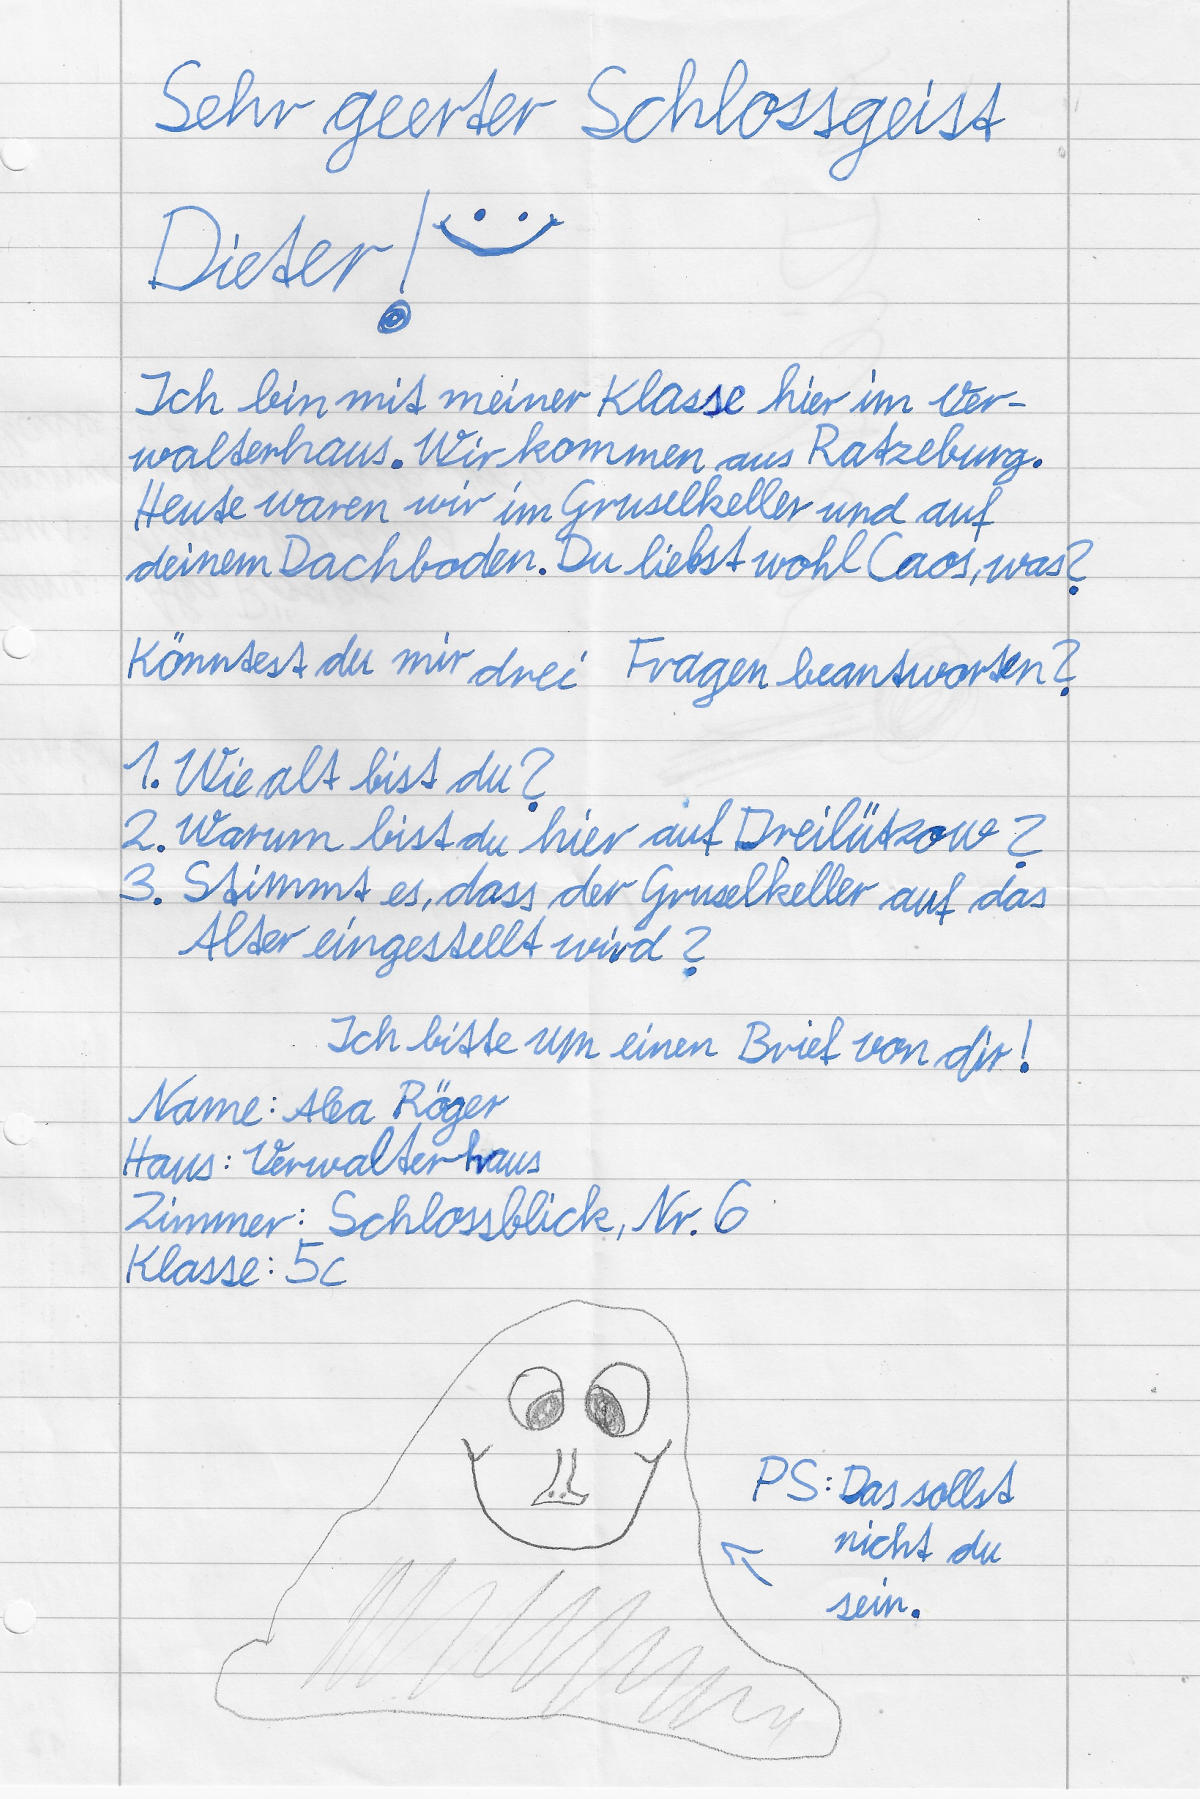 Sehr geerter Schlossgeist
Dieter!
Ich bin mit meiner Klasse hier im Ver-
walterhaus. Wir kommen aus Ratzeburg.
Heute waren wir im Gruselkeller und auf
deinem Dachboden. Du liebst wohl Caos, was?
Könntest du mir drei Fragen beantworten?
1. Wie alt bist du?
2. Warum bist du hier auf Dreilützow?
3. Stimmt es, dass der Gruselkeller auf das
Alter eingestellt wird?
Ich bitte um einen Brief von dir!
Name: Alea Röger
Haus: Verwalterhaus
Zimmer: Schlossblick, Nr. 6
Klasse: 5c
PS: Das sollst
nicht du
sein.